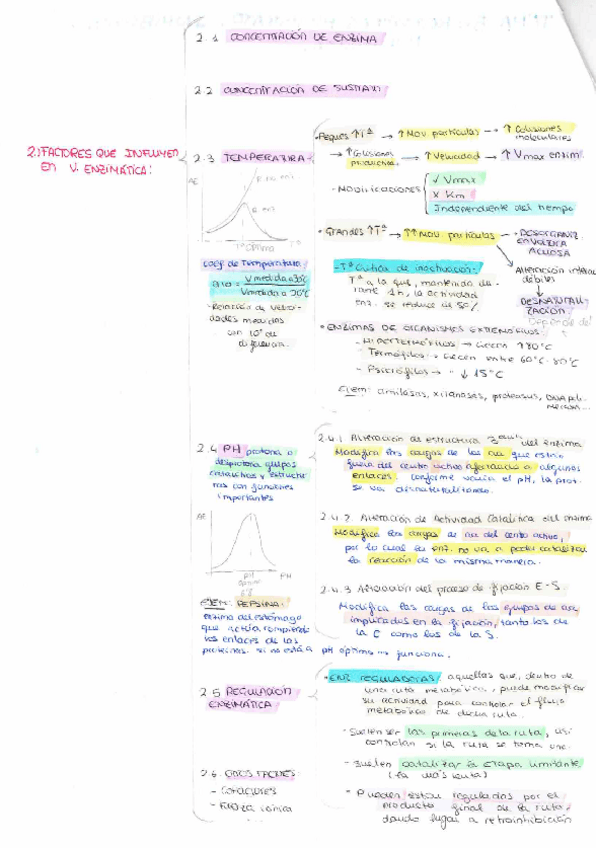 2.1 CONCENTRACIÓN DE ENZIMA
2.2 CONCENTRACIÓN DE SUSTRATO
2.) FACTORES QUE INFLUYEN
EN V. ENZIMÁTICA:
2.3 TEMPERATURA
AE
Tª óptima
Coef. de Temperatura
Q10 = V medida a 30ºC
V medida a 20ºC
- Relación de veloci-
dades medidas
con 10º de
diferencia.
• Peques ↑Tª → ↑ Mov. partículas → ↑ Colisiones
moleculares
→ ↑ Colisiones
productivas → ↑ Velocidad → ↑ Vmax enzim.
- Modificaciones
✓ Vmax
x Km
Independiente del tiempo
• Grandes ↑Tª → ↑↑ Mov. partículas → DESORGANIZ.
ENVOLTURA
ACUOSA
Alteración interac.
débiles
DESNATURALI-
ZACIÓN
- Tª Crítica de inactivación:
Tª a la que, manteniendo du-
rante 1h, la actividad
enz. se reduce al 50%
• ENZIMAS DE ORGANISMOS EXTREMÓFILOS:
- HIPERTERMÓFILOS → Crecen ↑80ºC
- Termófilos → Crecen entre 60ºC-80ºC
- Psicrófilos → ↓15ºC
Ejem: amilasas, xilanasas, proteasas, DNA poli-
merasa...
2.4 PH protona o
desprotona grupos
catalíticos y estructu-
ras con funciones
importantes
AE
PH
óptimo
PH
EJEM: PEPSINA:
enzima del estómago
que actúa rompiendo
los enlaces de las
proteínas. Si no está a pH óptimo no funciona.
2.4.1 Alteración de estructura 3aria del enzima
Modifica las cargas de los aa que están
fuera del centro activo afectando a algunos
enlaces. Conforme varía el pH, la prot.
se va desnaturalizando.
2.4.2 Alteración de Actividad Catalítica del enzima
Modifica las cargas de aa del centro activo,
por lo cual la enz. no va a poder catalizar
la reacción de la misma manera.
2.4.3 Alteración del proceso de fijación E-S.
Modifica las cargas de los grupos de aa
implicados en la fijación, tanto los de
la C como los de la S.
2.5 REGULACIÓN
ENZIMÁTICA
• ENZ REGULADORAS: aquellas que, dentro de
una ruta metabólica, puede modificar
su actividad para controlar el flujo
metabólico de dicha ruta.
- Suelen ser las primeras de la ruta, así
controlan si la ruta se toma
- Suelen catalizar la etapa limitante
(la más lenta)
- Pueden estar regulados por el
producto final de la ruta,
dando lugar a retroinhibición
2.6. OTROS FACTORES:
- Cofactores
- Fuerza iónica